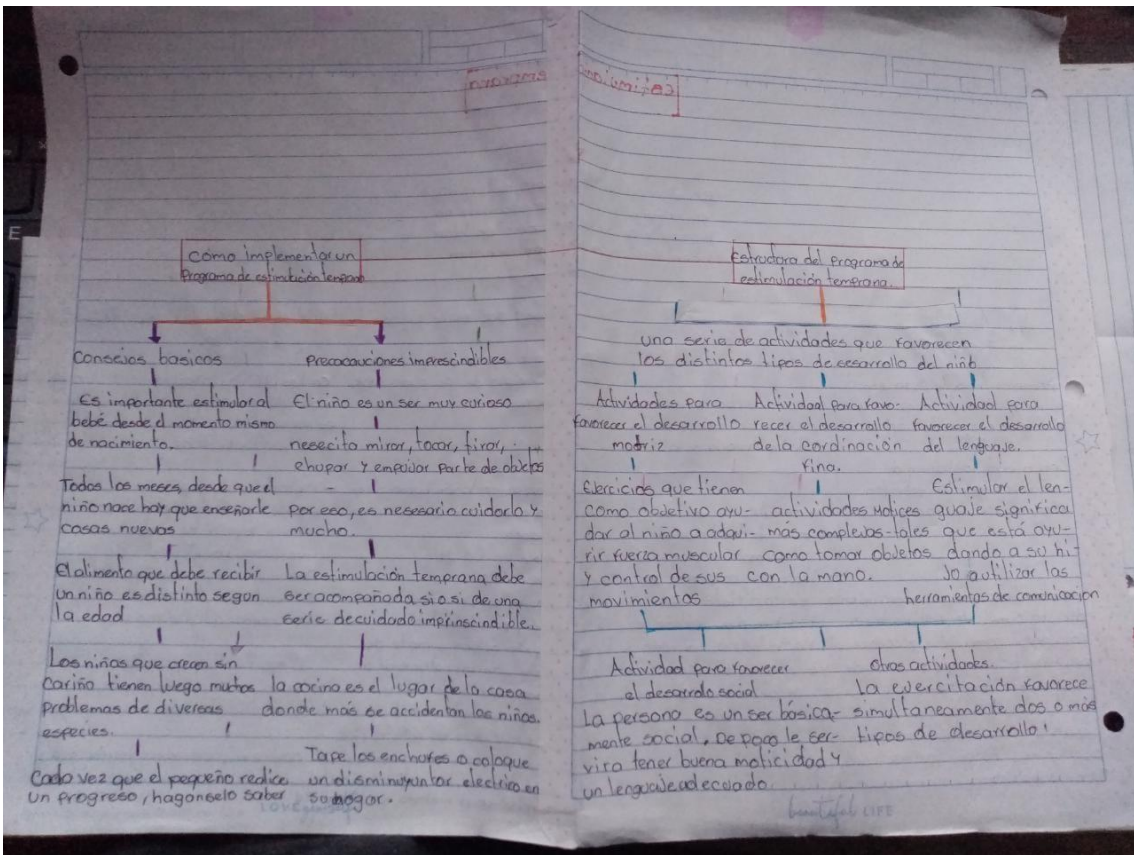 como implementar un
Programa de estimulación temprana
Consejos basicos
Es importante estimular al
bebé desde el momento mismo
de nacimiento.
Todos los meses, desde que el
niño nace hay que enseñarle
cosas nuevas
El alimento que debe recibir
un niño es distinto segun
la edad
Los niños que crecen sin
cariño tienen luego muchos
problemas de diversas
especies.
Cada vez que el pequeño realice
un progreso, haganselo saber
Precacauciones imprescindibles
El niño es un ser muy curioso
nesecita mirar, tocar, tirar,
chupar y empujar parte de objetos
por eso, es nesesario cuidarlo y
mucho.
La estimulación temprana debe
ser acompañada si o si de una
serie de cuidado imprinscindible.
la cocina es el lugar de la casa
donde más se accidentan los niños.
Tape los enchufes o coloque
un electrico en
su hogar.
Estructura del Programa de
estimulación temprana.
una serie de actividades que favorecen
los distintos tipos de desarrollo del niño
Actividades para
favorecer el desarrollo
motriz
Ejercicios que tienen
como objetivo ayu-
dar al niño a adqui-
rir fuerza muscular
y control de sus
movimientos
Actividad para favo-
recer el desarrollo
de la cordinación
fina.
actividades motices
más complejas tales
como tomar objetos
con la mano.
Actividad para
favorecer el desarrollo
del lenguaje.
Estimular el len-
guaje significa
que está ayu-
dando a su hi-
jo a utilizar las
herramientas de comunicación
Actividad para favorecer
el desarrollo social
La persona es un ser básica-
mente social. De poco le ser-
vira tener buena moticidad y
un lenguaje adecuado.
otras actividades.
La ejercitación favorece
simultaneamente dos o más
tipos de desarrollo.
beautiful LIFE